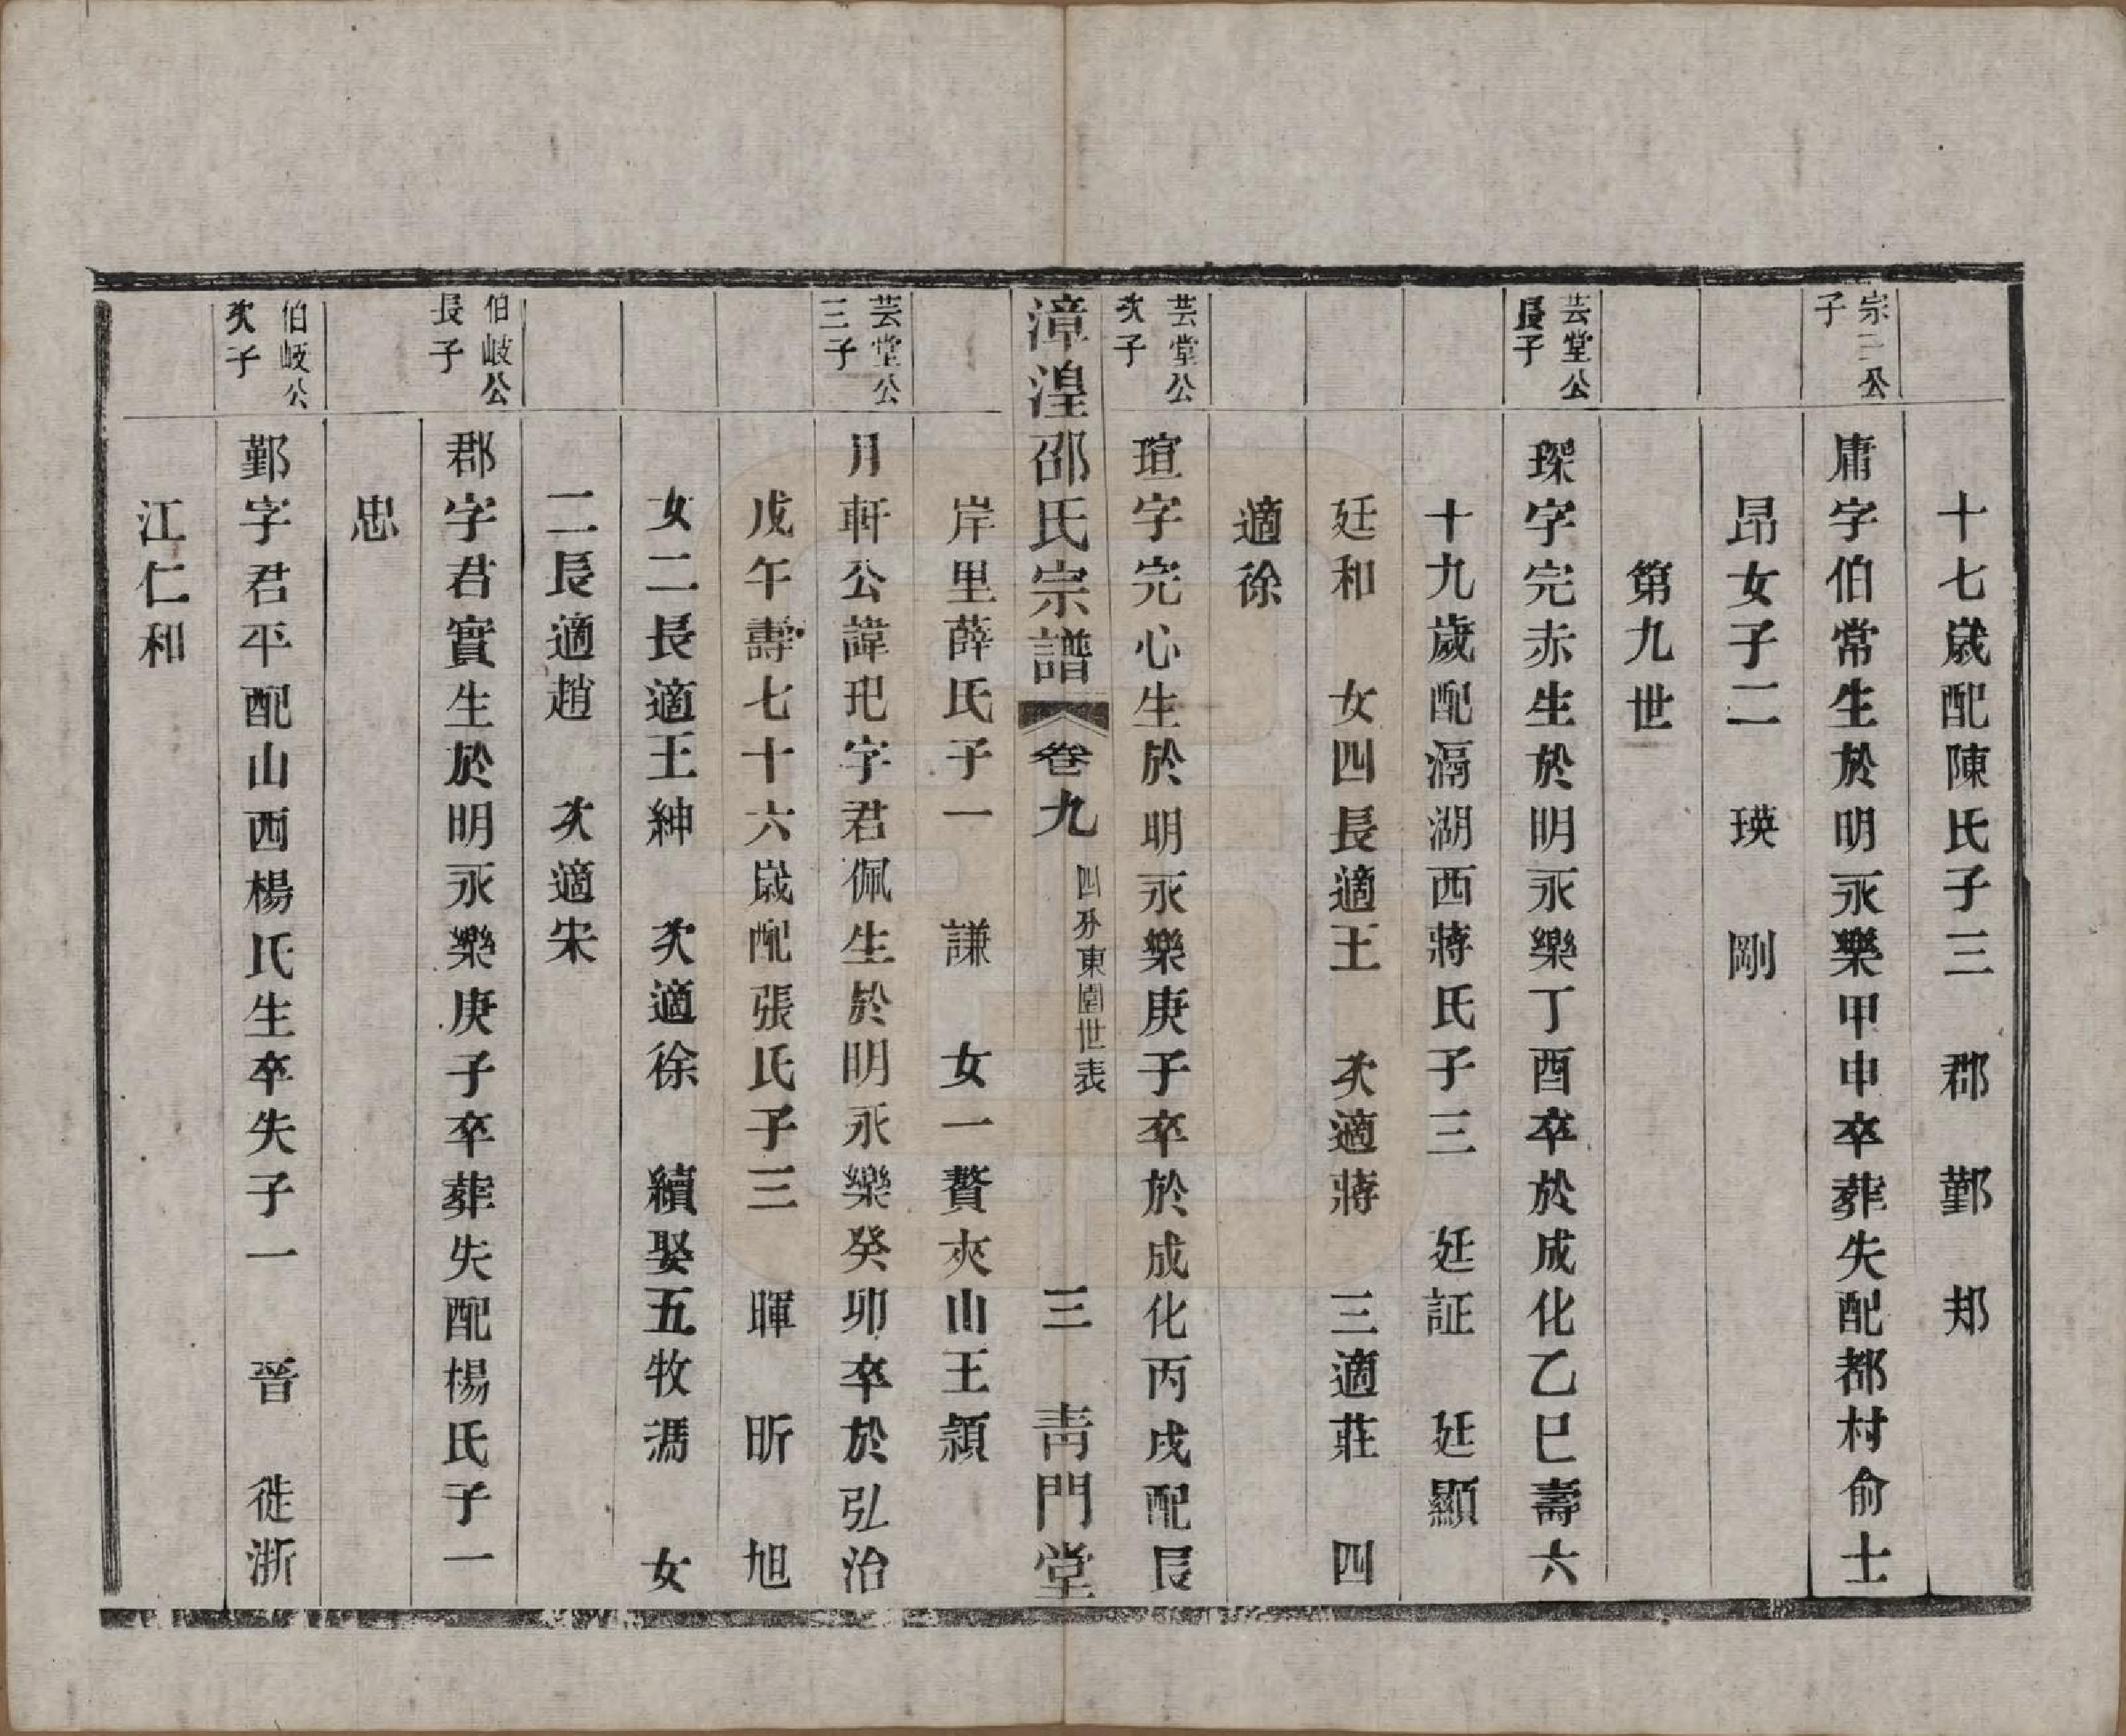 十七歲配陳氏子三　郡　鄞　邦
宗二公子
庸字伯常生於明永樂甲申卒葬失配都村俞士
昂女子二　瑛　剛
第九世
芸堂公長子
琛字完赤生於明永樂丁酉卒於成化乙巳壽六
十九歲配滆湖西蔣氏子三　廷証　廷顯
廷和　女四長適王　次適蔣　三適莊　四
適徐
芸堂公次子
瑄字完心生於明永樂庚子卒於成化丙戌配長
漳湟邵氏宗譜　卷九　四分東園世表　三　青門堂
岸里薛氏子一　謙　女一贅夾山王潁
芸堂公三子
月軒公諱玘字君佩生於明永樂癸卯卒於弘治
戊午壽七十六歲配張氏子三　暉　昕　旭
女二長適王紳　次適徐　續娶五牧馮　女
二長適趙　次適宋
伯岐公長子
郡字君實生於明永樂庚子卒葬失配楊氏子一
忠
伯岐公次子
鄞字君平配山西楊氏生卒失子一　晉　徙浙
江仁和